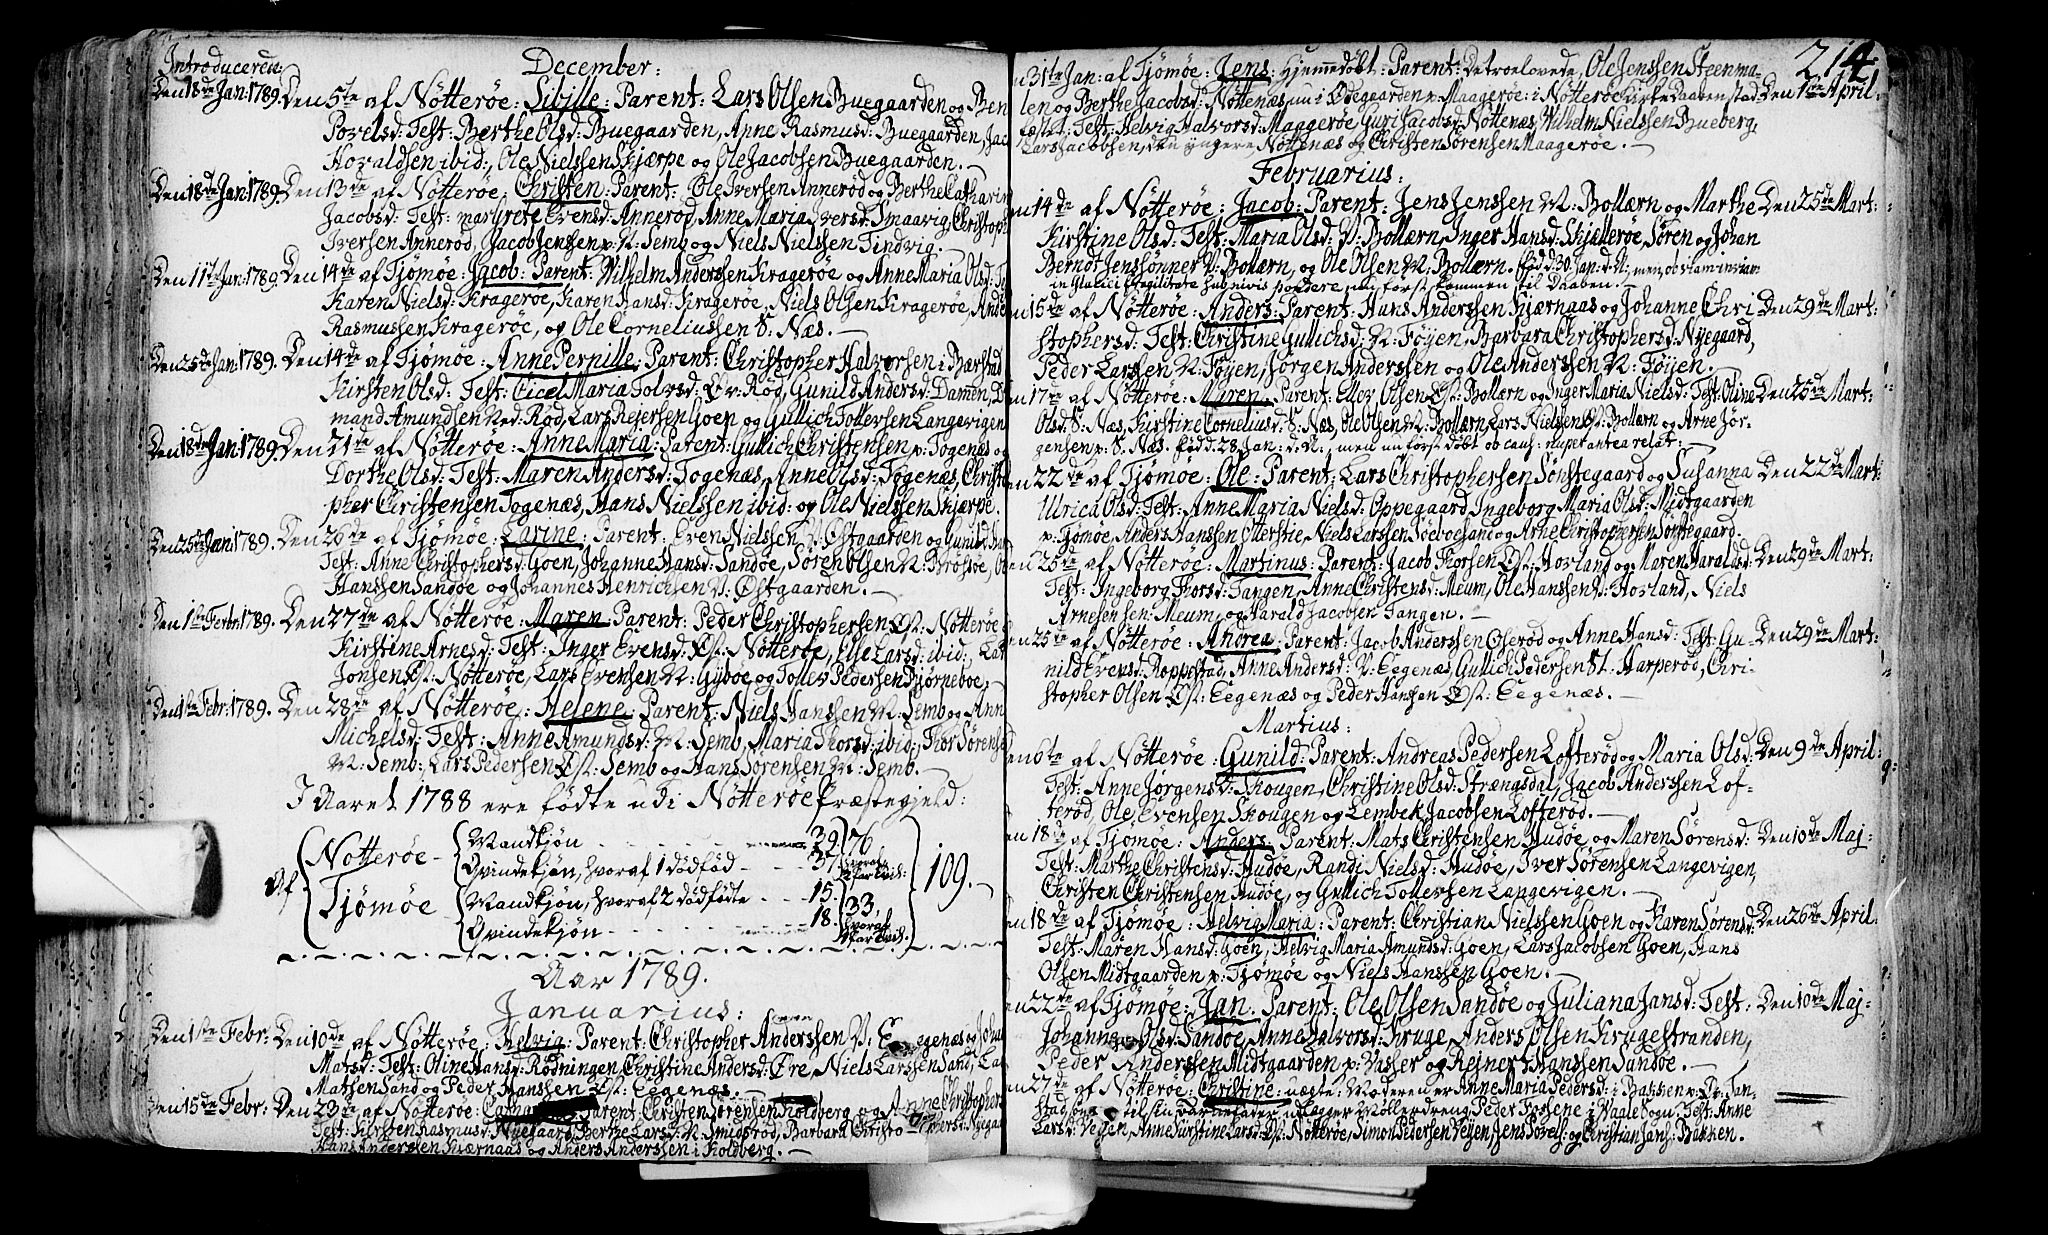 Introduceren:
December:
Den 18de Jan: 1789. Den 5te af Nötteröe: Sibille: Parent: Lars Olsen Buegaarden og Ben
Povelsd: Test: Berthe Olsd: Buegaarden, Anne Rasmusd: Buegaarden, Jac
Hovaldsen ibid:, Ole Nielssen Skjærpe og Ole Jacobsen Buegaarden. —
Den 18de Jan: 1789. Den 13de af Nötteröe: Christen: Parent: Ole Iversen Anneröd og Berthe Catharin
Jacobsd: Test: Margrete Evensd: Anneröd, Anne Maria Iversd: Smaavig, Christoph
Iversen Anneröd, Jacob Jenssen v: N: Semb og Niels Nielssen Tindvig. —
Den 11te Jan: 1789. Den 14de af Tjömöe: Jacob: Parent: Wilhelm Anderssen Krageröe og Anne Maria Olsd: T
Karen Nielsd: Krageröe, Karen Hansd: Krageröe, Niels Olsen Krageröe, Ande
Rasmussen Krageröe, og Ole Corneliussen S: Næs. —
Den 25de Jan: 1789. Den 14de af Tjömöe: Anne Pernille: Parent: Christopher Halvorsen i Bærstad
Kirsten Olsd: Test: Cicel Maria Tolvsd: Ø v: Röd, Gunild Andersd: Dammen,
mand Amundsen Röd, Lars Rejersen Goen og Gullich Tollefsen Langevigen
Den 18de Jan: 1789. Den 21de af Nötteröe: Anne Maria: Parent: Gullich Christensen v: Fogenæs og
Dorthe Olsd: Test: Maren Andersd: Fogenæs, Anne Olsd: Fogenæs, Christo
pher Christensen Fogenæs, Hans Nielssen ibid: og Ole Nielssen Skjærpe.
Den 25de Jan: 1789. Den 26de af Tjömöe: Larine: Parent: Even Nielssen N: Østgaarden og Gunild Han
Test: Anne Christophersd: Goen, Johanne Hansd: Sandöe, Sören Olsen N: Brötsöe,
Hanssen Sandöe og Johannes Henrichsen N: Østgaarden. —
Den 1ste Febr: 1789. Den 27de af Nötteröe: Maren: Parent: Peder Christophersen Øst: Nötteröe
Kirstine Arnesd: Test: Inger Evensd: Øst: Nötteröe, Else Larsd: ibid:, Lar
Jonsen Øst: Nötteröe, Lars Evensen N: Gyböe og Tollev Pedersen Björneboe,
Den 1ste Febr: 1789. Den 28de af Nötteröe: Helene: Parent: Niels Hanssen N: Semb og Ann
Michelsd: Test: Anne Amundsd: N: Semb, Maria Thorsd: ibid:, Thor Sörense
N: Semb, Lars Pedersen Øst: Semb og Hans Sörensen N: Semb. —
I Aaret 1788 ere födte udi Nötteröe Præstegjeld:
Af Nötteröe – Mandkjön 39 76
Qvindekjön, hvoraf 1 dödföd 37 hvoraf 2 par tvil:
Tjömöe Mandkjön, hvoraf 2 dödfödte 15. 33,
Qvindekjön 18. hvoraf 1 par tvil. 109. —
Aar 1789.
Januarius:
Den 1ste Febr: Den 10de af Nötteröe: Helvig: Parent: Christopher Anderssen V: Eegenæs og Joha
Matsd: Test: Oline Hansd: Rödningen, Christine Andersd: Øre, Niels Larssen Sand, Lar
Mathsen Sand og Peder Hanssen Øst: Eegenæs. —
Den 15de Febr: Den 23de af Nötteröe: Parent: Christen Sörensen Holdberg og Anne Christopher
Test: Kirsten Rasmusd: Nyegaard, Berthe Larsd: N: Smidsröd, Barbara Christo phersd: Nyegaa
Hans Anderssen Kjærnaas og Anders Anderssen i Holdberg. —
214
n 31te Jan: af Tjömöe: Jens: Hjemmedöbt: Parent: De troelovede, Ole Jenssen Steenma-
len og Berthe Jacobsd: Nöttenæs, nu i Ødegaarden v: Maageröe: i Nötteröe Kirke Daaben stad Den 1ste April:
fæstet: Test: Helvig Halvorsd: Maageröe, Guri Jacobsd: Nöttenæs, Wilhelm Nielssen Bueberg,
Lars Jacobsen, den yngere Nöttenæs og Christen Sörensen Maageröe. —
Februarius:
en 14de af Nötteröe: Jacob: Parent: Jens Jenssen N: Bollærn og Marthe Den 25de Mart:
Kirstine Olsd: Test: Maria Olsd: V: Bollærn, Inger Hansd: Skjelleröe, Sören og Johan
Berndt Jenssönner V: Bollærn, og Ole Olsen N: Bollærn. föd d: 30. Jan: d: A:, men ob
til Daaben. —
en 15de af Nötteröe: Anders: Parent: Hans Anderssen Kjærnaas og Johanne Chri Den 29de Mart:
stophersd: Test: Christine Gullichsd: N: Föyen, Barbara Christophersd: Nyegaard,
Peder Larssen N: Föyen, Jörgen Anderssen og Ole Anderssen N: Föyen. —
en 17de af Nötteröe: Maren: Parent: Ellev Olsen Øst: Bollærn og Inger Maria Nielsd: Test: Oline Den 25de Mart:
Olsd: S: Næs, Kirstine Corneliusd: S: Næs, Ole Olsen N: Bollærn, Lars Nielssen Øst: Bollærn og Arne Jör-
gensen v: S: Næs. föd d: 28. Jan: d: A:, men nu först döbt ob caus: nuper antea relat: —
en 22de af Tjömöe: Ole: Parent: Lars Christophersen Sönstegaard og Susanna Den 22de Mart:
Ulrica Olsd: Test: Anne Maria Nielsd: Oppegaard, Ingeborg Maria Olsd: Midtgaarden
v: Tjömöe, Anders Hanssen Otterstie, Niels Larssen Söeboesand og Arne Christophersen Sönstegaard.
en 25de af Nötteröe: Martinus: Parent: Jacob Thorsen Øst: Hovland og Maren Haraldsd: Den 29de Mart:
Test: Ingeborg Thorsd: Tangen, Anne Christensd: Meum, Ole Hanssen N: Hovland, Niels
Arnesensen: Meum, og Harald Jacobsen Tangen. —
en 25de af Nötteröe: Andrea: Parent: Jacob Anderssen Oseröd og Anne Hansd: Test: Gu- Den 29de Mart:
nild Evensd: Roppestad, Anne Andersd: V: Eegenæs, Gullich Pedersen St: Harperöd, Chri-
stopher Olsen Øst: Eegenæs og Peder Hanssen Øst: Eegenæs. —
Martius:
en 6te af Nötteröe: Gunild: Parent: Andreas Pedersen Lofteröd og Maria Olsd: Den 9de April:
Test: Anne Jörgensd: Skougen, Christine Olsd: Strængsdal, Jacob Anderssen Lof-
teröd, Ole Evensen Skougen og Lembek Jacobsen Lofteröd. —
en 18de af Tjömöe: Anders: Parent: Mats Christensen Hudöe, og Maren Sörensd: Den 10de Maj:
Test: Marthe Christensd: Hudöe, Randi Nielsd: Hudöe, Iver Sörensen Langevigen,
Christen Christensen Hudöe, og Gullich Tollefsen Langevigen. —
en 18de af Tjömöe: Helvig Maria: Parent: Christian Nielssen Goen og Karen Sörensd: Den 26de April:
Test: Maren Hansd: Goen, Helvig Maria Amundsd: Goen, Lars Jacobsen Goen, Hans
Olsen Midtgaarden v: Tjömöe og Niels Hanssen Goen. —
en 22de af Tjömöe: Jan: Parent: Ole Olsen Sandöe og Juliana Jansd: Test: Den 10de Maj:
Johanne Olsd: Sandöe, Anne Halvorsd: Kruge, Anders Olsen Krugestranden,
Peder Anderssen Midtgaarden v: Vasser og Reinert Hanssen Sandöe. —
en 27de af Nötteröe: Christine: uegte: Moderen er Anne Maria Pedersd: i Bakken v:
til sin Barnefader, udlægger Möllerdreng Peder Tossene i Vaale Sogn: Test: Anne
Larsd: Vejen, Anne Kirstine Larsd: Øst: Nötteröe, Simon Pedersen Vejen, Jens Povels: og Christian Jans: Bakken.